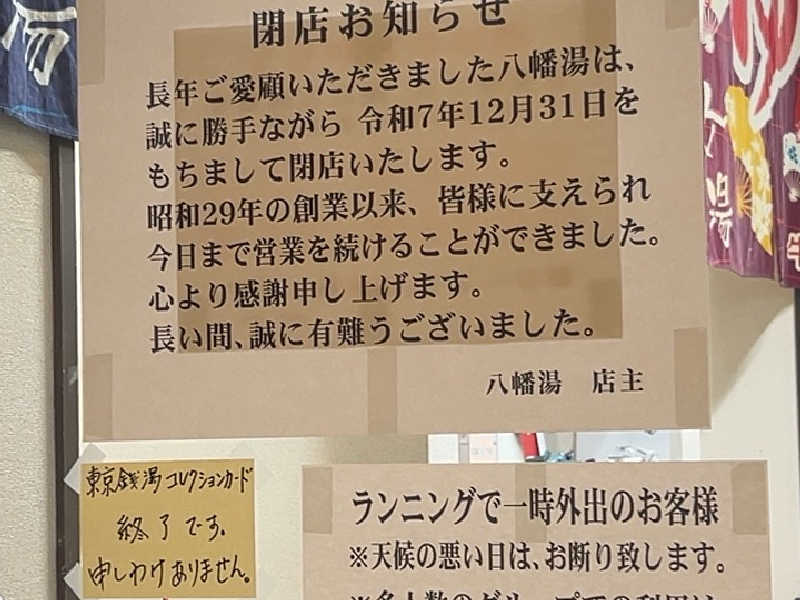 閉店お知らせ
長年ご愛顧いただきました八幡湯は、
誠に勝手ながら 令和7年12月31日を
もちまして閉店いたします。
昭和29年の創業以来、皆様に支えられ
今日まで営業を続けることができました。
心より感謝申し上げます。
長い間、誠に有難うございました。
八幡湯 店主
湯
東京銭湯コレクションカード
終了です。
申しわけありません。
ランニングで一時外出のお客様
※天候の悪い日は、お断り致します。